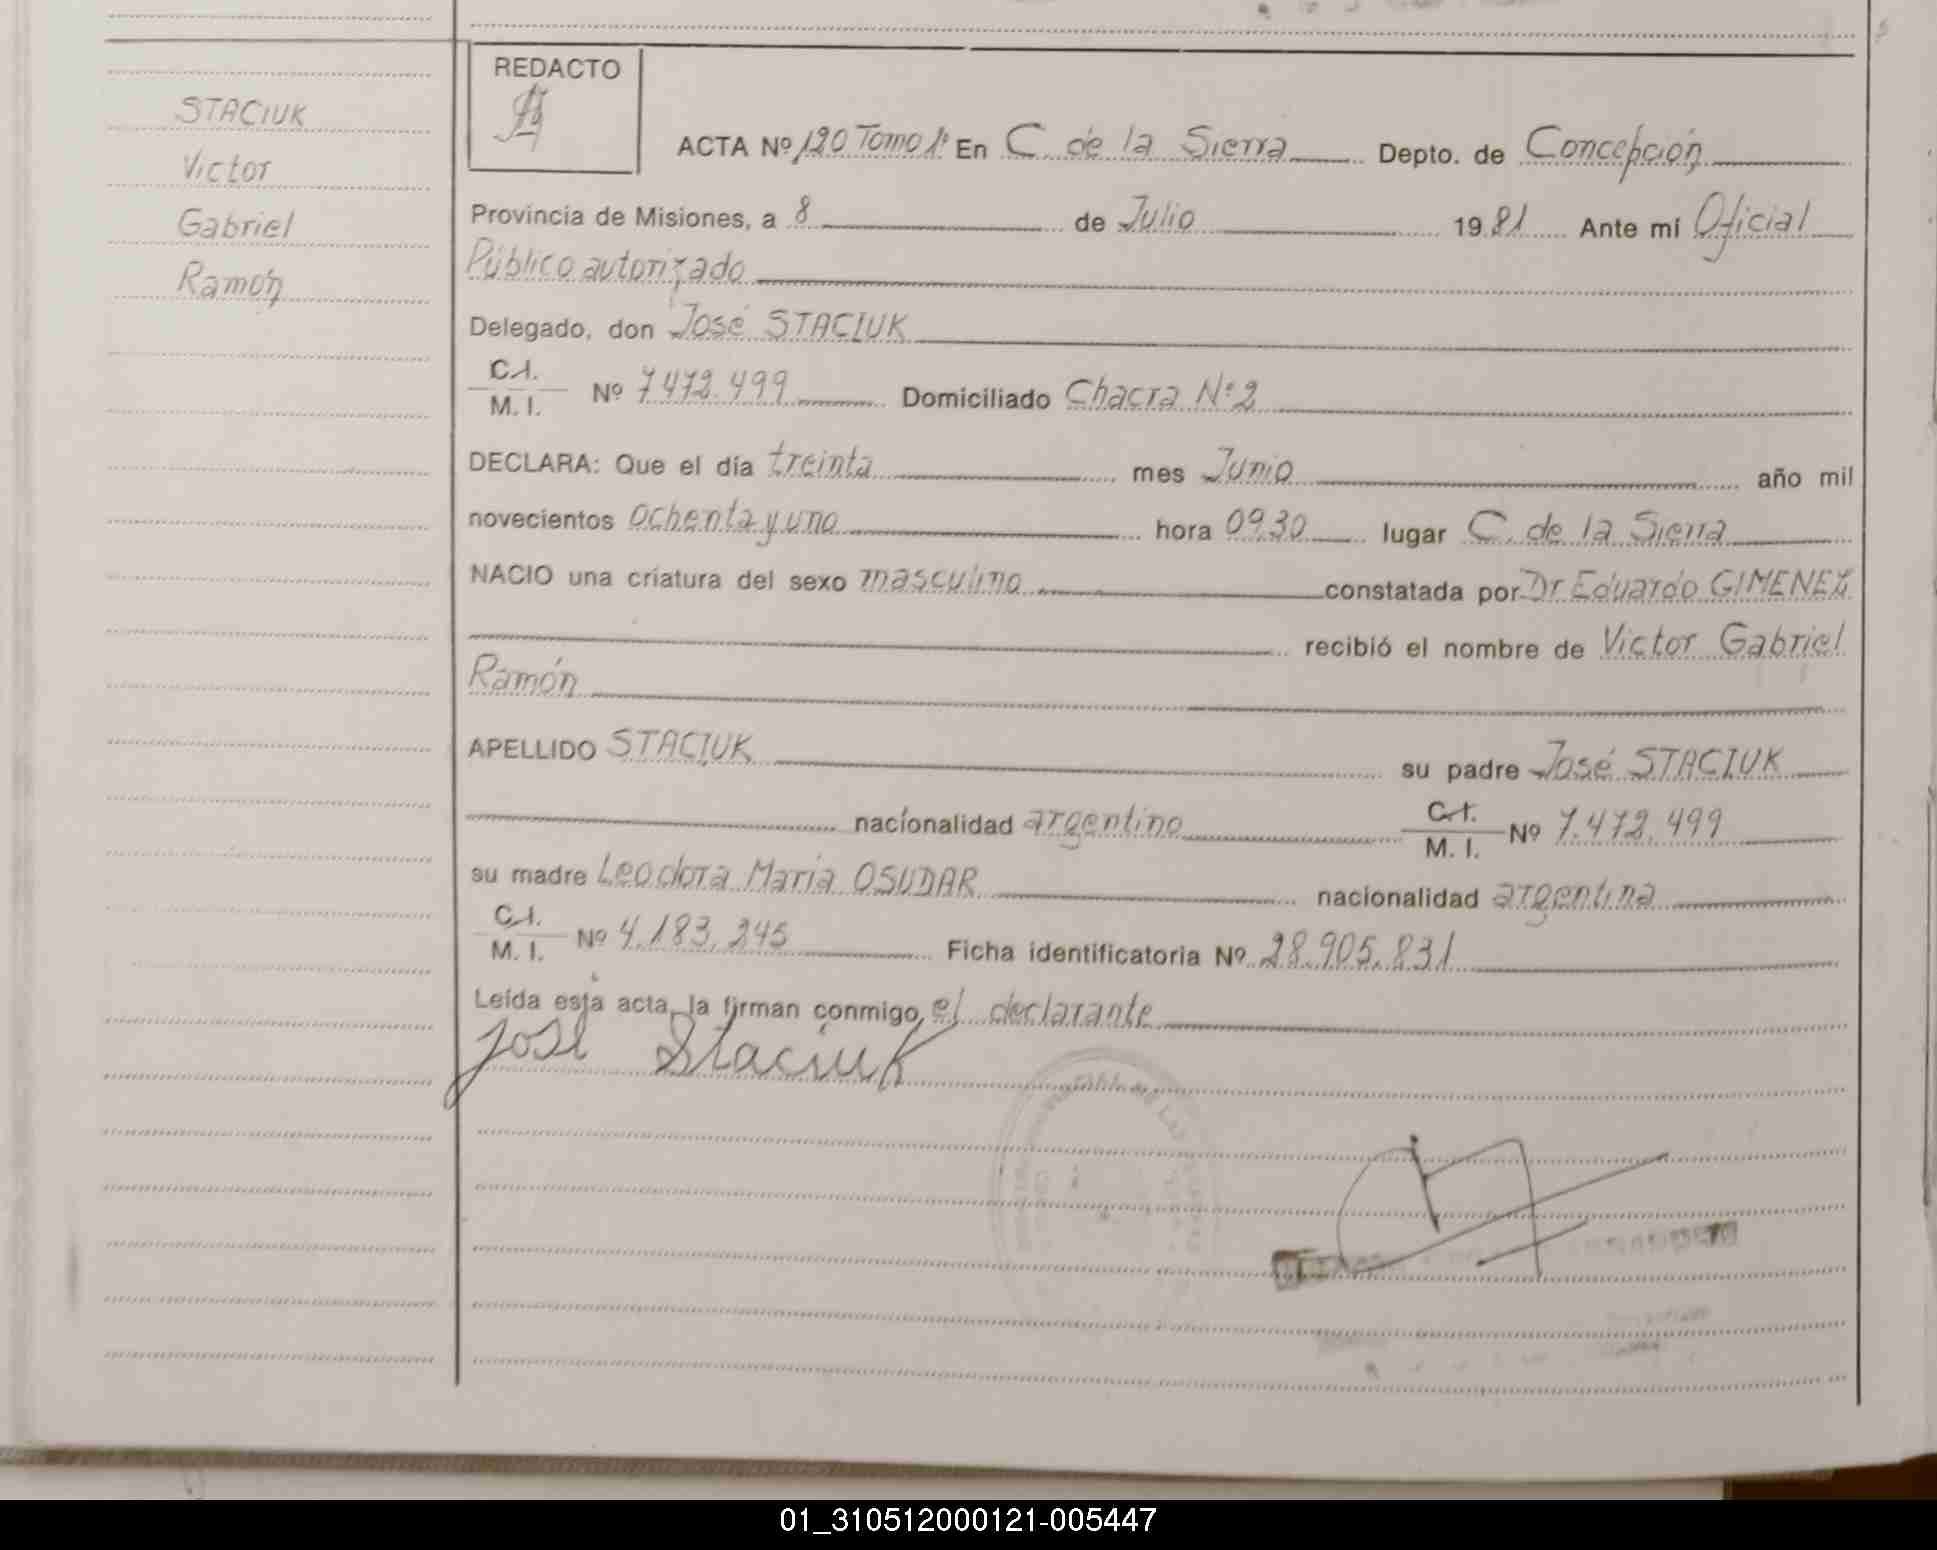 STACIUK
Victor
Gabriel
Ramón
REDACTO
ACTA Nº 120 Tomo 1º En C. de la Sierra Depto. de Concepción
Provincia de Misiones, a 8 de Julio 1981 Ante mí Oficial
Público autorizado
Delegado, don José STACIUK
C.I.
M. I. Nº 7.472.499 Domiciliado Chacra Nº 2
DECLARA: Que el día treinta mes Junio año mil
novecientos ochenta y uno hora 09.30 lugar C. de la Sierra
NACIO una criatura del sexo masculino constatada por Dr Eduardo GIMENEZ
recibió el nombre de Victor Gabriel
Ramón
APELLIDO STACIUK su padre José STACIUK
nacionalidad argentino C.I.
M. I. Nº 7.472.499
su madre Leodora María OSUDAR nacionalidad argentina
C.I.
M. I. Nº 4.183.245 Ficha identificatoria Nº 28.905.831
Leída esta acta, la firman conmigo, el declarante
José Staciuk
01_310512000121-005447